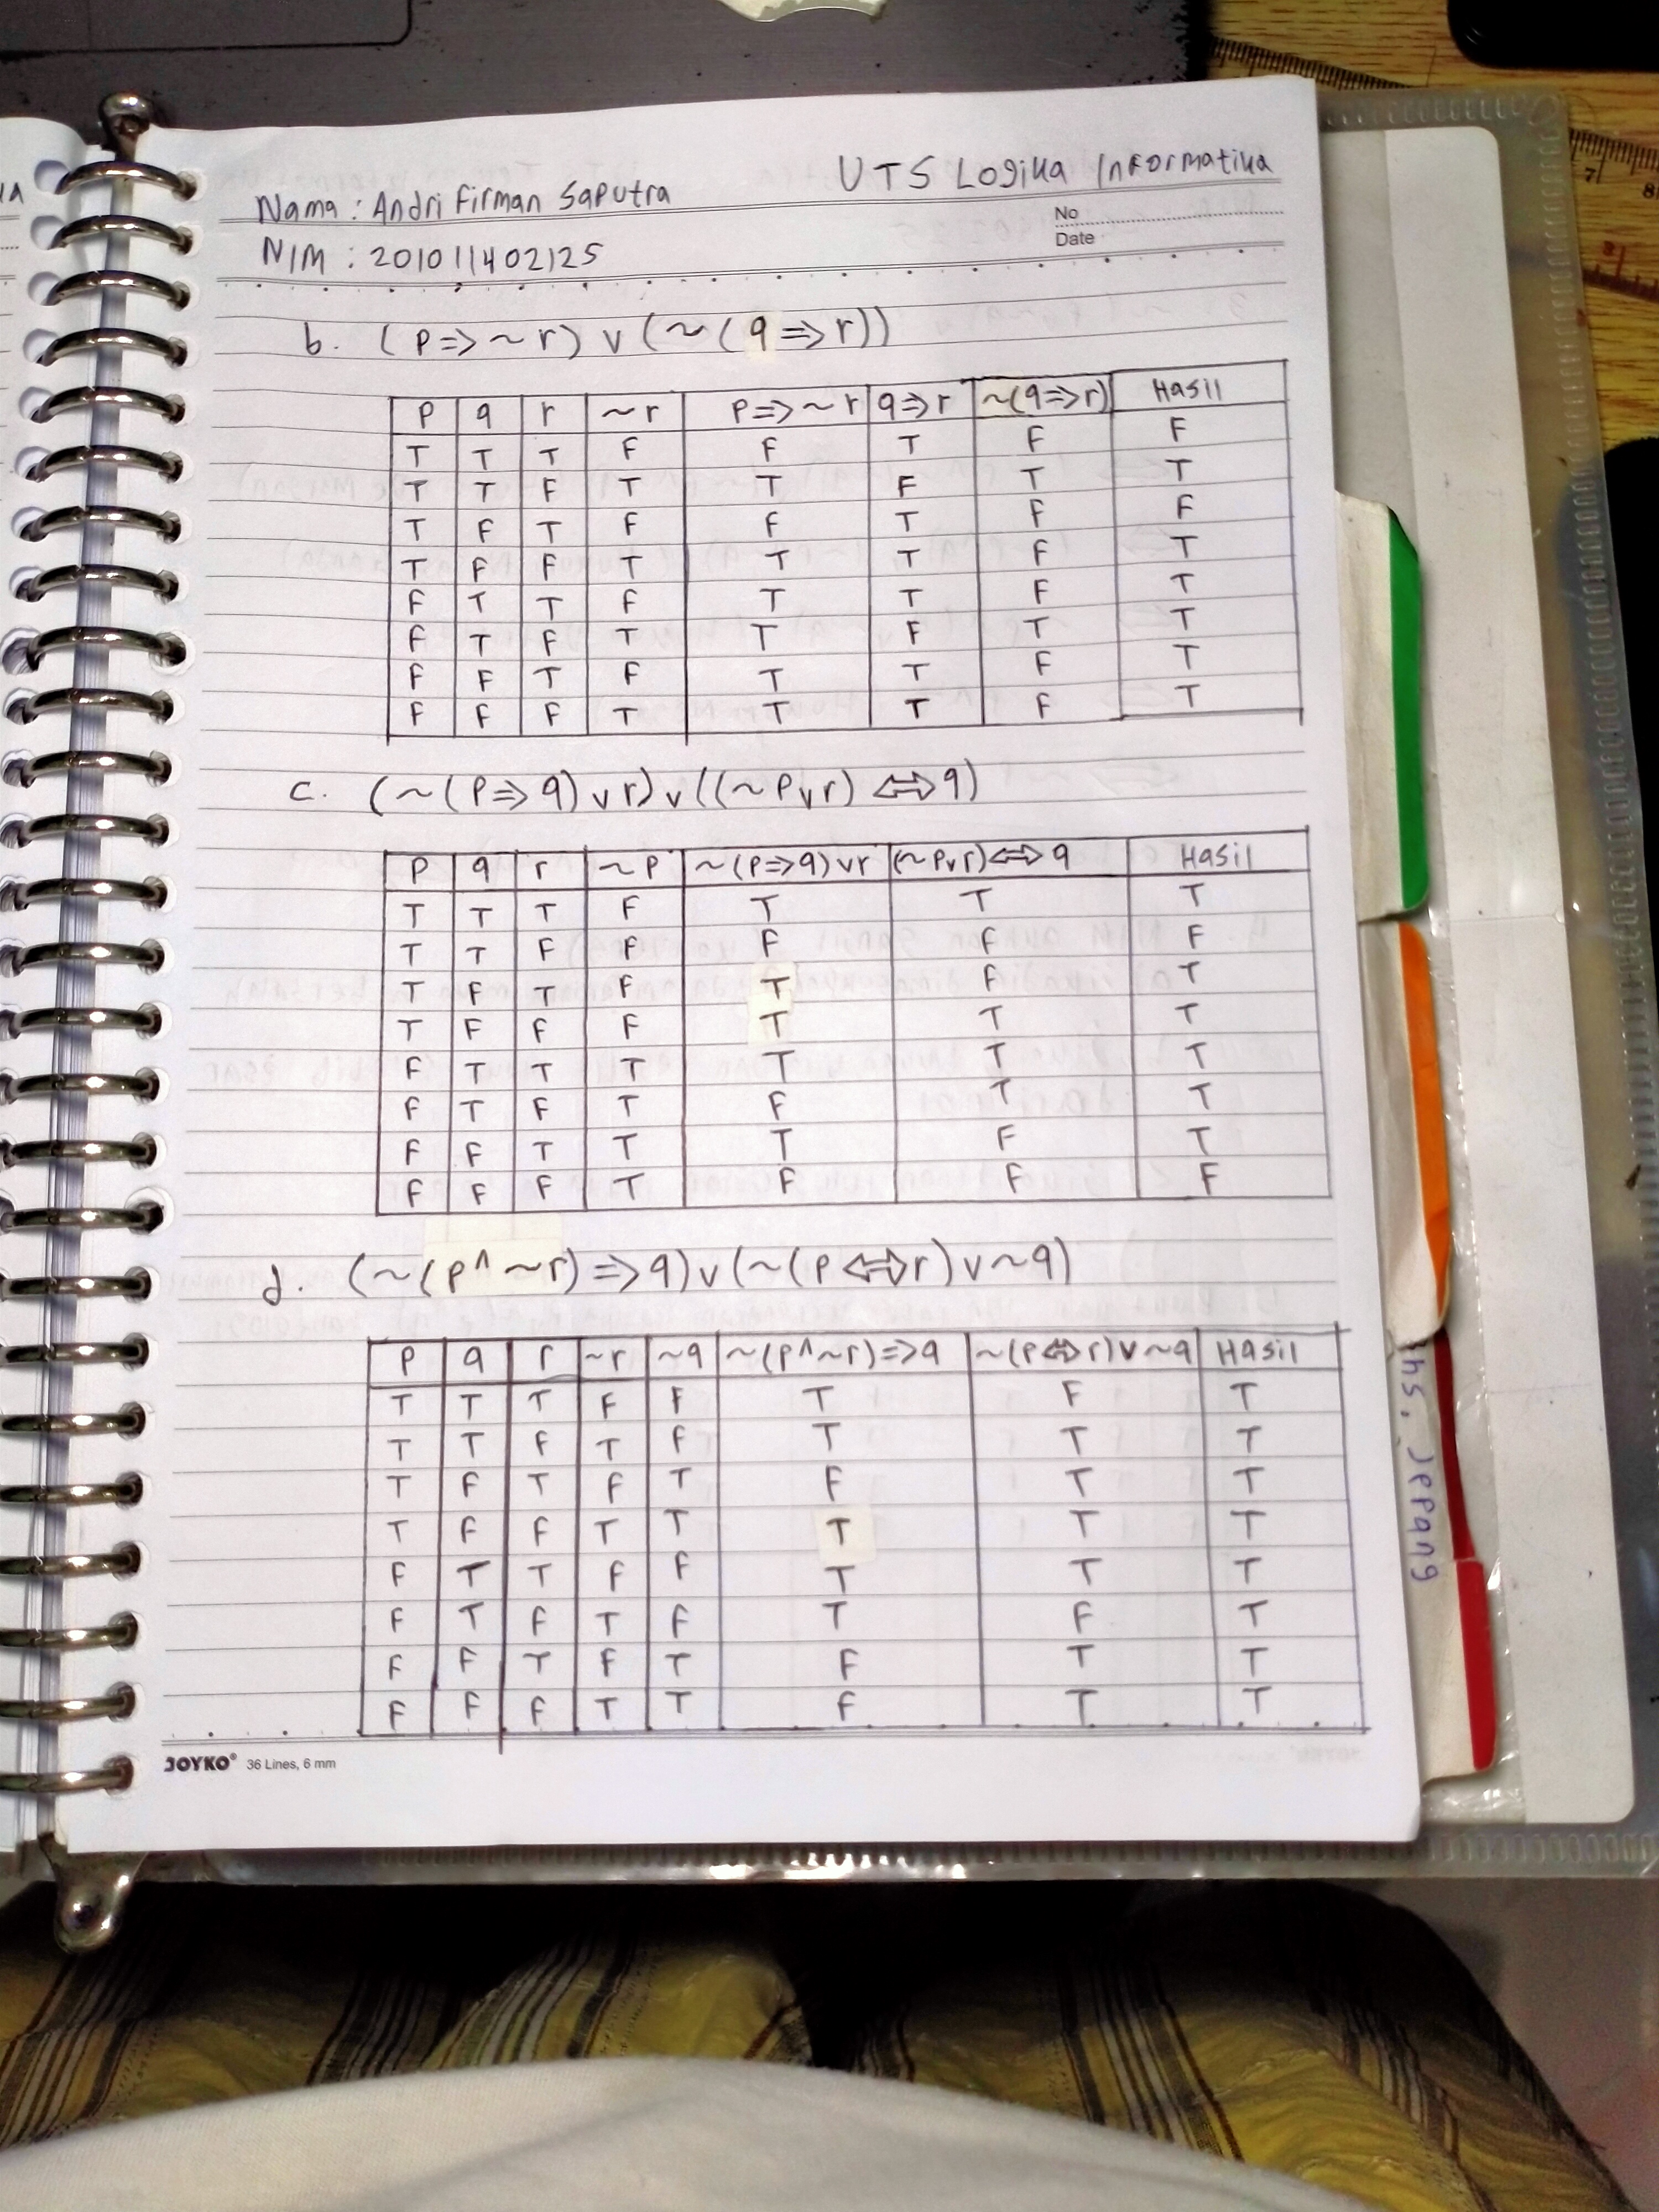 UTS Logika Informatika
Nama : Andri Firman Saputra
No
Date
NIM : 201011402125
b. (p => ~r) v (~(q => r))
p q r ~r p=>~r q=>r ~(q=>r) Hasil
T T T F F T F F
T T F T T F T T
T F T F F T F F
T F F T T T F T
F T T F T T F T
F T F T T F T T
F F T F T T F T
F F F T T T F T
c. (~(p=>q) v r) v ((~p v r) <=> q)
p q r ~p ~(p=>q) v r (~p v r) <=> q Hasil
T T T F T T T
T T F F F F F
T F T F T F T
T F F F T T T
F T T T T T T
F T F T F T T
F F T T T F T
F F F T F F F
d. (~(p ^ ~r) => q) v (~(p <=> r) v ~q)
p q r ~r ~q ~(p^~r)=>q ~(p<=>r) v ~q Hasil
T T T F F T F T
T T F T F T T T
T F T F T F T T
T F F T T T T T
F T T F F T T T
F T F T F T F T
F F T F T F T T
F F F T T F T T
JOYKO® 36 Lines, 6 mm
hs. Jepang
gubad